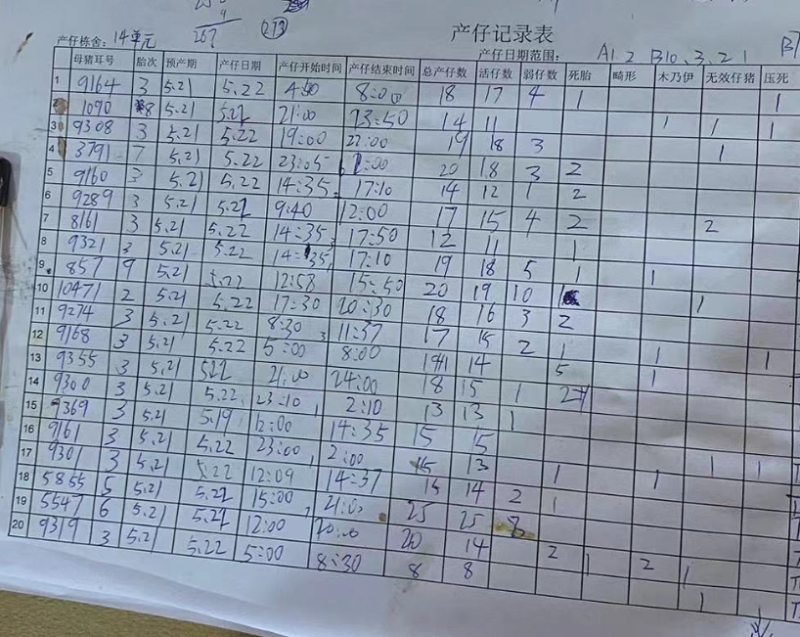 267
273
产仔记录表
产仔栋舍: 14单元 产仔日期范围: A12 B10、3、21
母猪耳号 胎次 预产期 产仔日期 产仔开始时间 产仔结束时间 总产仔数 活仔数 弱仔数 死胎 畸形 木乃伊 无效仔猪 压死
1 9164 3 5.21 5.22 8:00 18 17 4 1 1
2 1090 8 5.21 5.22 21:00 23:50 14 11 1 1 1
3 9308 3 5.21 5.22 19:00 22:00 19 18 3 1
4 3791 7 5.21 5.22 23:05 20 18 3 2
5 9160 3 5.21 5.22 14:35 17:10 14 12 1 2
6 9289 3 5.21 5.22 9:40 12:00 17 15 4 2 2
7 8161 3 5.21 5.22 14:35 17:50 12 11 1
8 9321 3 5.21 5.22 14:35 17:10 19 18 5 1 1
9 857 9 5.21 5.22 12:58 15:50 20 19 10 1
10 10471 2 5.21 5.22 17:30 20:30 18 16 3 2
11 9274 3 5.21 5.22 8:30 11:37 17 15 2 1 1 1
12 9168 3 5.21 5.22 5:00 8:00 14 5 1
13 9355 3 5.21 5.22 21:00 24:00 18 15 1 2
14 9300 3 5.21 5.22 23:10 2:10 13 13 1
15 9369 3 5.21 5.19 12:00 14:35 15 15
16 9161 3 5.21 5.22 23:00 2:00 15 13 1 1 1 1
17 9301 3 5.21 5.22 12:09 14:37 15 14 2 1
18 5855 5 5.21 5.22 15:00 21:00 25 25 8
19 5547 6 5.21 5.22 12:00 20:00 20 14 2 1 2 1
20 9319 3 5.21 5.22 5:00 8:30 8 8 1 1